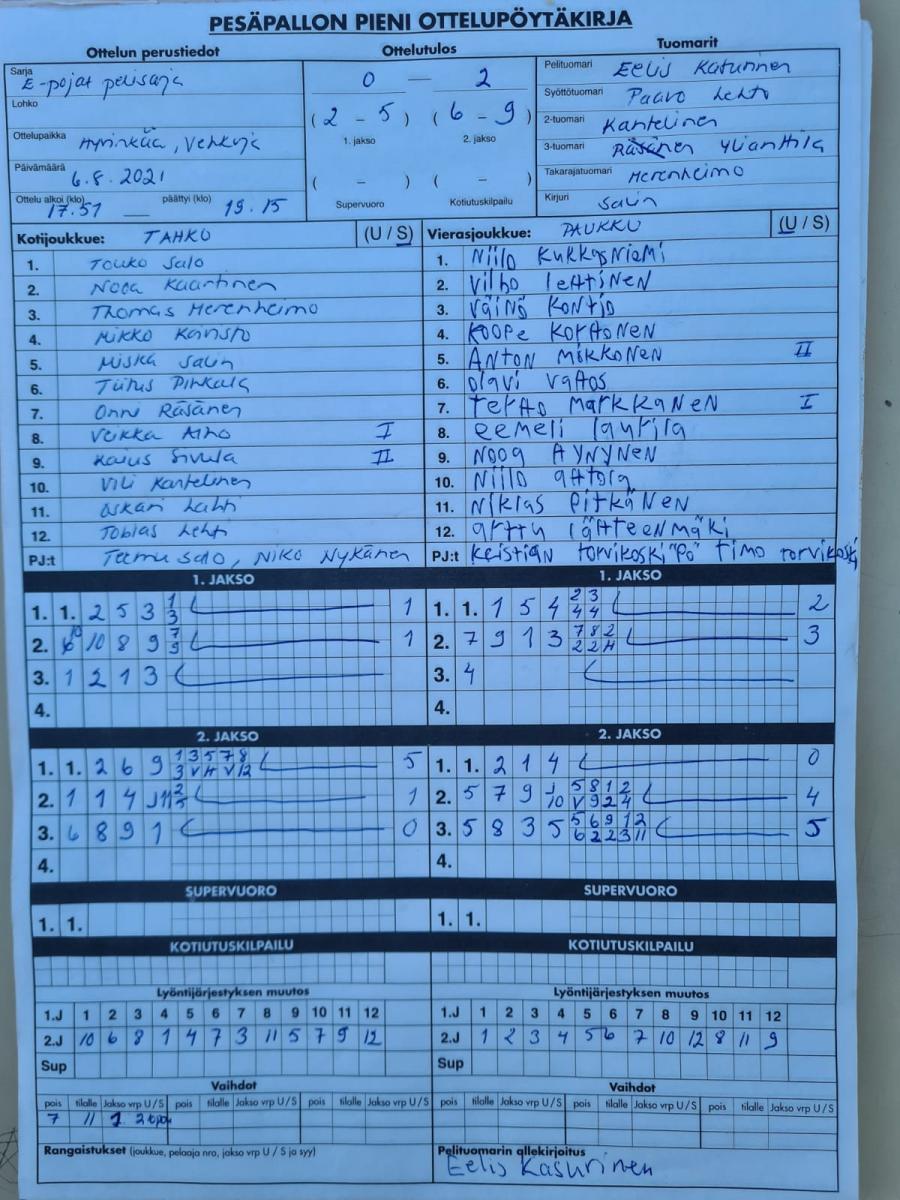 PESÄPALLON PIENI OTTELUPÖYTÄKIRJA
Ottelun perustiedot
Sarja E-pojat pelisarja
Lohko
Ottelupaikka Hyvinkää, Vehkoja
Päivämäärä 6.8.2021
Ottelu alkoi (klo) 17.51 — päättyi (klo) 19.15
Ottelutulos
0 — 2
(2 - 5) (6 - 9)
1. jakso 2. jakso
( - ) ( - )
Supervuoro Kotiutuskilpailu
Tuomarit
Pelituomari Eelis Kasurinen
Syöttötuomari Paavo Lehto
2-tuomari Kantelinen
3-tuomari Ylianttila
Takarajatuomari Merenheimo
Kirjuri Salin
Kotijoukkue: TAHKO (U / S)
1. Touko Salo
2. Nooa Kaartinen
3. Thomas Merenheimo
4. Mikko Karisto
5. Miska Salin
6. Tiitus Pihkala
7. Onni Räsänen
8. Veikka Aho I
9. Kaius Sivula II
10. Vili Kantelinen
11. Oskari Lahti
12. Tobias Lehti
PJ:t Teemu Salo, Niko Nykänen
Vierasjoukkue: PAUKKU (U / S)
1. Niilo Kukkasniemi
2. Vilho lehtiNeN
3. Väinö kontio
4. Koope KorhoNeN
5. ANton mökkoNeN II
6. olavi
7. terho markkaNeN I
8. eemeli laurila
9. Nooa HyNyNeN
10. Niilo ahtola
11. Niklas PitkäNeN
12. arttu lähteenmäki
PJ:t torvikoski "Po" timo torvikoski
1. JAKSO
1. 1. 2 5 3 1 3 1
2. 10 8 9 7 9 1
3. 1 2 1 3
4.
1. JAKSO
1. 1. 1 5 4 2 3 4 4 2
2. 7 9 1 3 7 8 2 2 2 4 3
3. 4
4.
2. JAKSO
1. 1. 2 6 9 1 3 5 7 8 3 V H V 12 5
2. 1 1 4 J11 2 5 1
3. 6 8 9 1 0
4.
2. JAKSO
1. 1. 2 1 4 0
2. 5 7 9 10 5 8 1 2 V 9 2 4 4
3. 5 8 3 5 5 6 9 12 6 2 2 3 11 5
4.
SUPERVUORO
1. 1.
SUPERVUORO
1. 1.
KOTIUTUSKILPAILU
KOTIUTUSKILPAILU
Lyöntijärjestyksen muutos
1.J 1 2 3 4 5 6 7 8 9 10 11 12
2.J 10 6 8 1 4 7 3 11 5 7 9 12
Sup
Lyöntijärjestyksen muutos
1.J 1 2 3 4 5 6 7 8 9 10 11 12
2.J 1 2 3 4 5 6 7 10 12 8 11 9
Sup
Vaihdot
pois tilalle Jakso vrp U / S pois tilalle Jakso vrp U / S pois tilalle Jakso vrp U / S
7 11
Vaihdot
pois tilalle Jakso vrp U / S pois tilalle Jakso vrp U / S pois tilalle Jakso vrp U / S
Rangaistukset (joukkue, pelaaja nro, jakso vrp U / S ja syy)
Pelituomarin allekirjoitus
Eelis Kasurinen